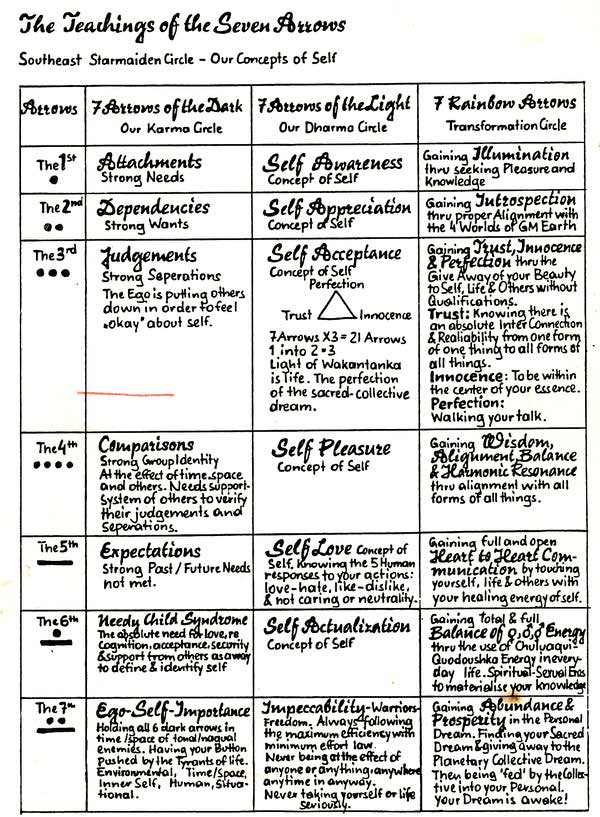 The Teachings of the Seven Arrows
Southeast Starmaiden Circle - Our Concepts of Self
Arrows
7 Arrows of the Dark
Our Karma Circle
7 Arrows of the Light
Our Dharma Circle
7 Rainbow Arrows
Transformation Circle
The 1st
Attachments
Strong Needs
Self Awareness
Concept of Self
Gaining Illumination
thru seeking Pleasure and
Knowledge
The 2nd
Dependencies
Strong Wants
Self Appreciation
Concept of Self
Gaining Introspection
thru proper Alignment with
the 4 Worlds of GM Earth
The 3rd
Judgements
Strong Seperations
The Ego is putting others
down in order to feel
„okay" about self.
Self Acceptance
Concept of Self
Perfection
Trust Innocence
7 Arrows X3 = 21 Arrows
1 into 2 = 3
Light of Wakantanka
is life. The perfection
of the sacred-collective
dream.
Gaining Trust, Innocence
& Perfection thru the
Give Away of your Beauty
to Self, Life & Others without
Qualifications.
Trust: Knowing there is
an absolute Inter Connection
& Realiability from one form
of one thing to all forms of
all things.
Innocence: To be within
the center of your essence.
Perfection:
Walking your talk.
The 4th
Comparisons
Strong Group Identity
At the effect of time, space
and others. Needs support-
System of others to verify
their judgements and
Seperations.
Self Pleasure
Concept of Self
Gaining Wisdom,
Alignment, Balance
& Harmonic Resonance
thru alignment with all
forms of all things.
The 5th
Expectations
Strong Past / Future Needs
not met.
Self Love Concept of
Self. Knowing the 5 Human
responses to your actions:
love-hate, like-dislike,
& not caring or neutrality.
Gaining full and open
Heart to Heart Com-
munication by touching
yourself, life & others with
your healing energy of self.
The 6th
Needy Child Syndrome
The absolute need for love, re
cognition, acceptance, security
& support from others as a way
to define & identify self
Self Actualization
Concept of Self
Gaining total & full
Balance of Energy
thru the use of Chuluaqui-
Quodoushka Energy in every-
day life. Spiritual-Sexual Eros
to materialise your knowledge
The 7th
Ego-Self-Importance
Holding all 6 dark arrows in
time/space of tonal/nagual
enemies. Having your Button
Pushed by the Tyrants of life.
Environmental, Time/Space,
Inner Self, Human, Situa-
tional.
Impeccability-Warriors-
Freedom. Always following
the maximum efficiency with
minimum effort law.
Never being at the effect of
anyone or anything, anywhere
anytime in anyway.
Never taking yourself or life
seriously.
Gaining Abundance &
Prosperity in the Personal
Dream. Finding your Sacred
Dream & giving away to the
Planetary Collective Dream.
Then being 'fed' by the Collec-
tive into your Personal.
Your Dream is awake!